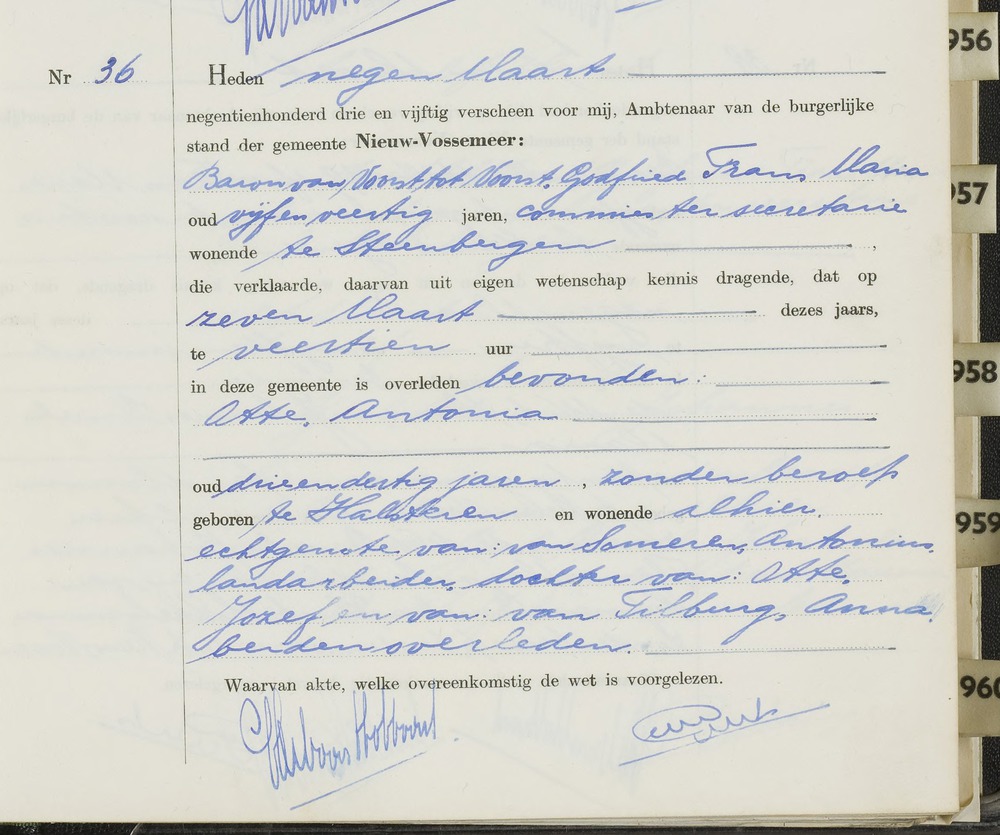 Nr 36
Heden negen Maart
negentienhonderd drie en vijftig verscheen voor mij, Ambtenaar van de burgerlijke
stand der gemeente Nieuw-Vossemeer:
Baron van Voorst tot Voorst, Godfried Frans Maria
oud vijfenveertig jaren, commies ter secretarie
wonende te Steenbergen ,
die verklaarde, daarvan uit eigen wetenschap kennis dragende, dat op
zeven Maart dezes jaars,
te veertien uur
in deze gemeente is overleden bevonden:
Otte, Antonia
oud drieendertig jaren , zonder beroep
geboren te Halsteren en wonende alhier.
echtgenote van: van Someren, Antonius,
landarbeider, dochter van: Otte,
Jozef en van: van Tilburg, Anna,
beiden overleden.
Waarvan akte, welke overeenkomstig de wet is voorgelezen.
956
957
958
959
960